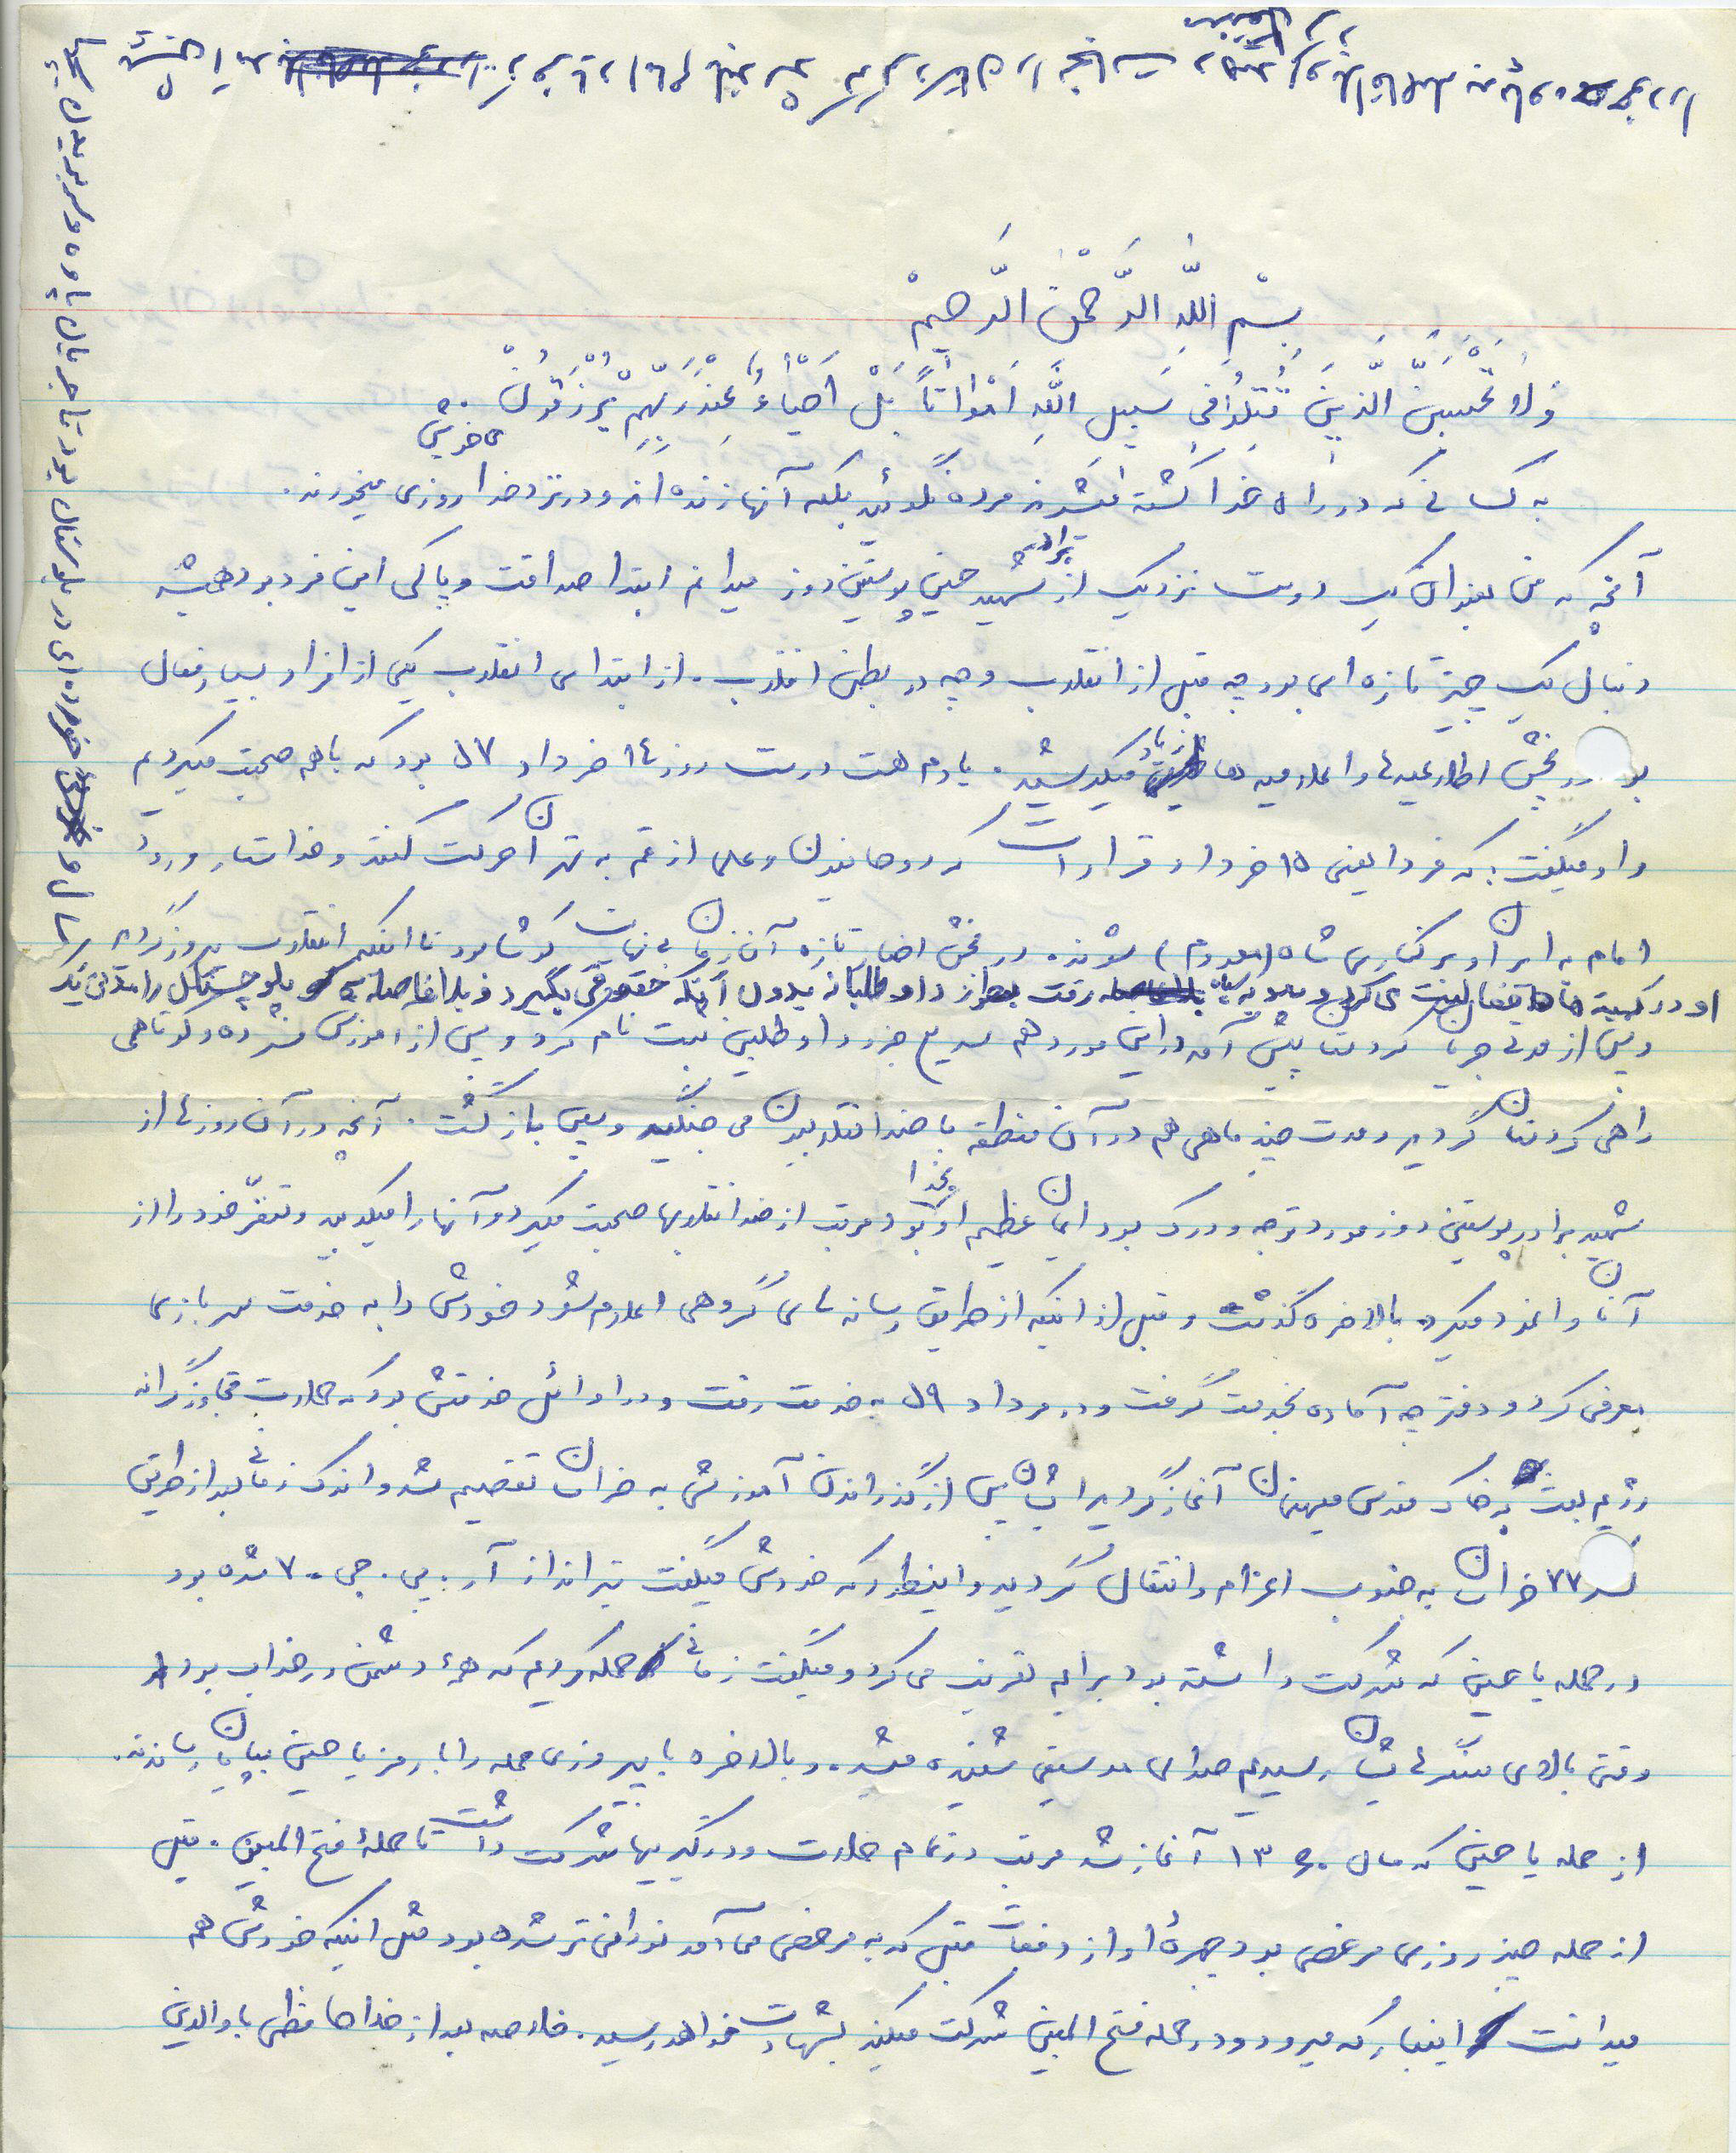 بِسْمِ اللّهِ الرَّحْمنِ الرَّحیمْ
وَلا تَحْسَبَنَّ الَّذینَ قُتِلُوا فی سَبیلِ اللَّهِ اَمْواتاً بَلْ اَحْیاءٌ عِنْدَ رَبِّهِمْ یُرْزَقُونْ.
به کسانی که در راه خدا کشته میشوند مرده نگوئید بلکه آنها زنده اند و در نزد خدا روزی میخورند.
آنچه که من بعنوان یک دوست نزدیک از برادر شهید حسین پوستین دوز میدانم ابتدا صداقت و پاکی این فرد بود همیشه
دنبال یک چیز تازه ای بود چه قبل از انقلاب و چه در بطن انقلاب. از ابتدای انقلاب یکی از افراد بسیار فعال
در پخش اطلاعیه ها و اعلامیه ها زیاد میکوشید. یادم هست درست روز ۱۴ خرداد ۵۷ بود که باهم صحبت میکردیم
و او میگفت: که فردا یعنی ۱۵ خرداد قرار است که روحانیون و علما از قم به تهران حرکت کنند و خواستار ورود
امام به ایران و برکناری شاه (معدوم) شوند. در پخش اخبار تازه آن زمان بی نهایت کوشا بود تا اینکه انقلاب پیروز گردید
او در کمیته ها فعالیت می کرد و بعد به سپاه رفت داوطلبانه بدون آنکه حقوقی بگیرد و بلافاصله
و پس از مدتی جریان کردستان پیش آمد در این مورد هم سریع جزو داوطلبین ثبت نام کرد و پس از آموزش فشرده و کوتاهی
راهی کردستان گردید و مدت چند ماهی هم در آن منطقه با ضد انقلابیون می جنگید و سپس بازگشت. آنچه در آن روزها از
شهید برادر پوستین دوز مورد توجه و درک بود ایمان عظیم او بخدا بود مرتب از ضد انقلابیها صحبت میکرد و آنها را میکوبید و تنفّر خود را از
آنان وانمود میکرد. بالاخره گذشت و قبل از اینکه از طریق رسانه های گروهی اعلام شود خودش را به خدمت سربازی
معرفی کرد و دفترچه آماده بخدمت گرفت و در مرداد ۵۹ به خدمت رفت و در اوائل خدمتش بود که حملات تجاوزگرانه
رژیم بعث به خاک مقدس میهنمان آغاز گردید ایشان پس از گذراندن آموزش به خراسان تقسیم شد و اندک زمانی بعد از طریق
لشکر ۷۷ خراسان به جنوب اعزام و انتقال گردید و اینطور که خودش میگفت تیرانداز آر. پی. جی ۷ شده بود
در حمله یا حسین که شرکت داشته بود برایم تعریف می کرد و میگفت زمانی حمله کردیم که همهٔ دشمن در خواب بود
وقتی بالای سنگرهایشان رسیدیم صدای موسیقی شنیده میشد. و بالاخره با پیروزی حمله را با رمز یا حسین بپایان رساندند.
از حمله یا حسین که سال ۱۳۶۰ آغاز شد مرتب در تمام حملات و درگیریها شرکت داشت تا حملهٔ فتح المبین. قبل
از حمله چند روزی مرخصی بود چهرهٔ او از دفعات قبل که به مرخصی می آمد نورانی تر شده بود مثل اینکه خودش هم
میدانست اینبار که میرود و در حمله فتح المبین شرکت میکند بشهادت خواهد رسید. خلاصه بعد از خداحافظی با والدین